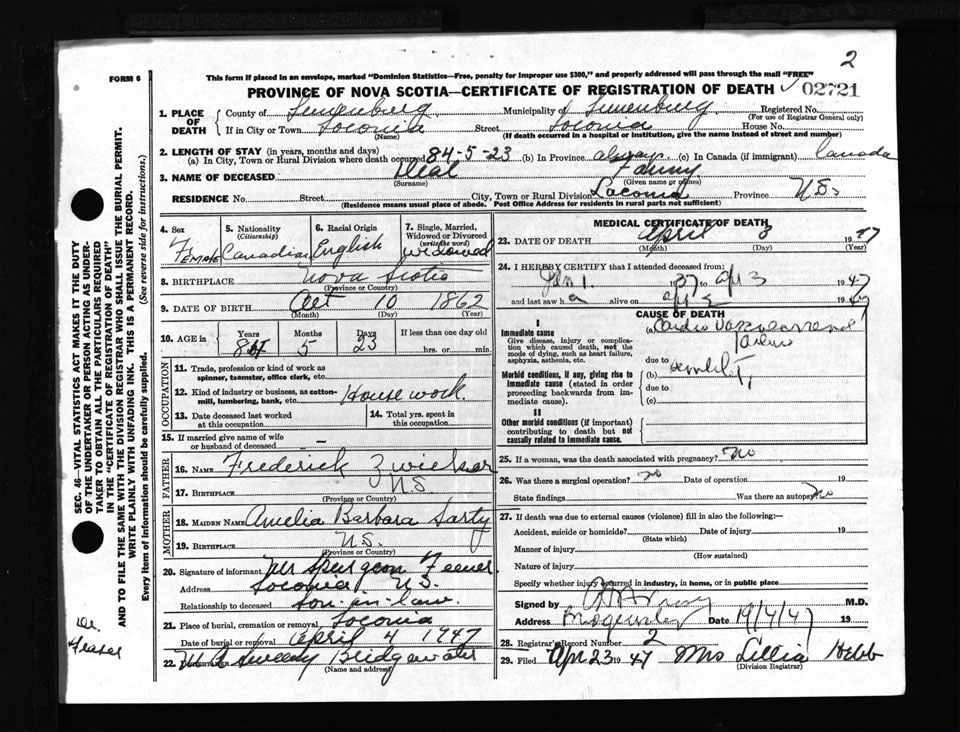 2
FORM 6
This form if placed in an envelope, marked "Dominion Statistics—Free, penalty for improper use $300," and properly addressed will pass through the mail "FREE"
PROVINCE OF NOVA SCOTIA—CERTIFICATE OF REGISTRATION OF DEATH
02721
1. PLACE OF DEATH
County of Lunenburg Municipality of Lunenburg Registered No.
(For use of Registrar General only)
If in City or Town Laconia Street Laconia House No.
(Name) (If death occurred in a hospital or institution, give the name instead of street and number)
2. LENGTH OF STAY (in years, months and days)
(a) In City, Town or Rural Division where death occurred 84-5-23 (b) In Province always (c) In Canada (if immigrant) Canada
3. NAME OF DECEASED Deal Fanny
(Surname) (Given name or names)
RESIDENCE No. Street City, Town or Rural Division Laconia Province N.S.
(Residence means usual place of abode. Post Office Address for residents in rural parts not sufficient)
4. Sex Female
5. Nationality (Citizenship) Canadian
6. Racial Origin English
7. Single, Married, Widowed or Divorced (write the word) widowed
8. BIRTHPLACE Nova Scotia
(Province or Country)
9. DATE OF BIRTH Oct 10 1862
(Month) (Day) (Year)
10. AGE in Years 84 Months 5 Days 23 If less than one day old
hrs. or min.
OCCUPATION
11. Trade, profession or kind of work as spinner, teamster, office clerk, etc.
12. Kind of industry or business, as cotton-mill, lumbering, bank, etc. House work.
13. Date deceased last worked at this occupation
14. Total yrs. spent in this occupation
15. If married give name of wife or husband of deceased —
FATHER
16. NAME Frederick Zwicker
17. BIRTHPLACE N.S
(Province or Country)
MOTHER
18. MAIDEN NAME Amelia Barbara Sarty
19. BIRTHPLACE N.S.
(Province or Country)
20. Signature of informant Mr Spurgeon Feener
Address Laconia N.S.
Relationship to deceased Son-in-law.
21. Place of burial, cremation or removal Laconia
Date of burial or removal April 4 1947
22. Undertaker Sweeny Bridgewater
(Name and address)
MEDICAL CERTIFICATE OF DEATH
23. DATE OF DEATH April 3 1947
(Month) (Day)
24. I HEREBY CERTIFY that I attended deceased from:
Jan 1. 1937 to Apr 3 1947
and last saw h alive on Apr 2 1947
CAUSE OF DEATH
I
Immediate cause
Give disease, injury or complication which caused death, not the mode of dying, such as heart failure, asphyxia, asthenia, etc.
(a) Cardio Vascular renal failure
due to
Morbid conditions, if any, giving rise to immediate cause (stated in order proceeding backwards from immediate cause).
(b) senility
due to
(c)
II
Other morbid conditions (if important) contributing to death but not causally related to immediate cause.
25. If a woman, was the death associated with pregnancy? No
26. Was there a surgical operation? no Date of operation 19
State findings Was there an autopsy? No
27. If death was due to external causes (violence) fill in also the following:—
Accident, suicide or homicide? Date of injury 19
(State which)
Manner of injury
(How sustained)
Nature of injury
Specify whether injury occurred in industry, in home, or in public place
Signed by M.D.
Address Bridgewater Date 19/4/47 19
28. Registrar's Record Number 2
29. Filed Apr 23 1947 Mrs Lillia Hebb
(Division Registrar)
SEC. 46—VITAL STATISTICS ACT MAKES IT THE DUTY
OF THE UNDERTAKER OR PERSON ACTING AS UNDER-
TAKER TO OBTAIN ALL THE PARTICULARS REQUIRED
IN THE "CERTIFICATE OF REGISTRATION OF DEATH"
AND TO FILE THE SAME WITH THE DIVISION REGISTRAR WHO SHALL ISSUE THE BURIAL PERMIT.
WRITE PLAINLY WITH UNFADING INK. THIS IS A PERMANENT RECORD.
Every item of information should be carefully supplied. (See reverse side for instructions.)